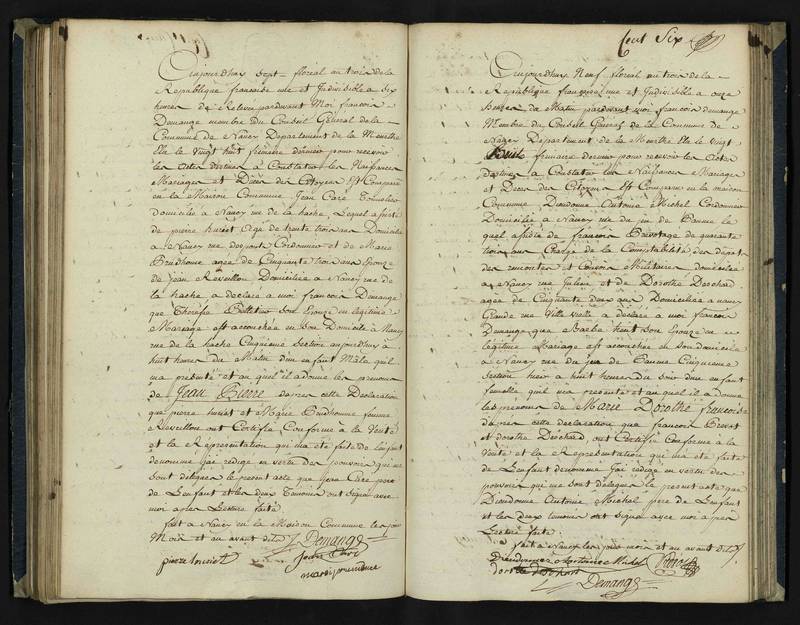 Aujourdhuy Sept floreal an trois de la
Republique francaise une et Indivisible a six
heures de Relevée pardevant Moi francois
Demange membre du Conseil Général de la
Commune de Nancy Departement de la Meurthe
Elu le vingt huit frimaire dernier pour recevoir
les actes destinés a Constater les Naissances
Mariages et Décès des Citoyens Est Comparu
en la Maison Commune Jean Caré
Domicilié a Nancy rue de la hache, Lequel assisté
de pierre huriet agé de trente trois ans Domicilié
a Nancy rue Cordonnier et de Marie
Prudhomme agée de Cinquante trois ans Epouze
de jean Reveillon Domiciliée a Nancy rue de
la hache a déclaré a moi francois Demange
que Therese son Epouze en légitime
Mariage est accouchée en son Domicile a Nancy
rue de la hache Cinquieme Section aujourdhuy a
huit heures du Matin d'un enfant Mâle quil
ma présenté et au quel il a donné les prenoms
de Jean Pierre dapres cette Déclaration
que pierre huriet et Marie Prudhomme femme
Reveillon ont Certifié Conforme a la Verité
et la Représentation qui ma été faite de Lenfant
denommé jai redigé en vertu des pouvoirs qui me
sont delegués le present acte que Jean Caré pere
de Lenfant et les deux Temoins ont signé avec
moi apres Lecture faite.
fait a Nancy en la Maison Commune les jour
Mois et an avant dits Demange
pierre huriet
Cent Six
Aujourdhuy Neuf floreal an trois de la
Republique francaise une et Indivisible a onze
heures du Matin pardevant moi francois demange
Membre du Conseil Général de la Commune de
Nancy Departement de la Meurthe Elu le vingt
huit frimaire dernier pour recevoir les Actes
Destinés a Constater les Naissances Mariages
et Décès des Citoyens Est Comparu en la maison
Commune Dieudonné Antoine Michel Cordonnier
Domicilié a Nancy rue du jeu de Paume le
quel assisté de francois de quarante
trois ans Chargé de la Comptabilité des depots
des remontes et Convois Militaires domicilié
a Nancy rue et de Dorothé Dechard
agée de Cinquante deux ans Domiciliée a nancy
Grande rue Ville vieille a déclaré a moi francois
Demange que Barbe son Epouze en
légitime Mariage est accouchée en son domicile
a Nancy rue du jeu de Paume Cinquieme
Section hier a huit heures du soir d'un enfant
femelle quil ma présenté et au quel il a donné
les prénoms de Marie Dorothé francoise
dapres cette déclaration que francois
et dorothé Dechard ont Certifié Conforme a la
Vérité et la Représentation qui ma été faite
de Lenfant denommé jai redigé en vertu des
pouvoirs qui me sont delegués le present acte que
Dieudonné Antoine Michel pere de Lenfant
et les deux temoins ont signé avec moi apres
Lecture faite.
fait a Nancy les jour mois et an avant dits
Demange